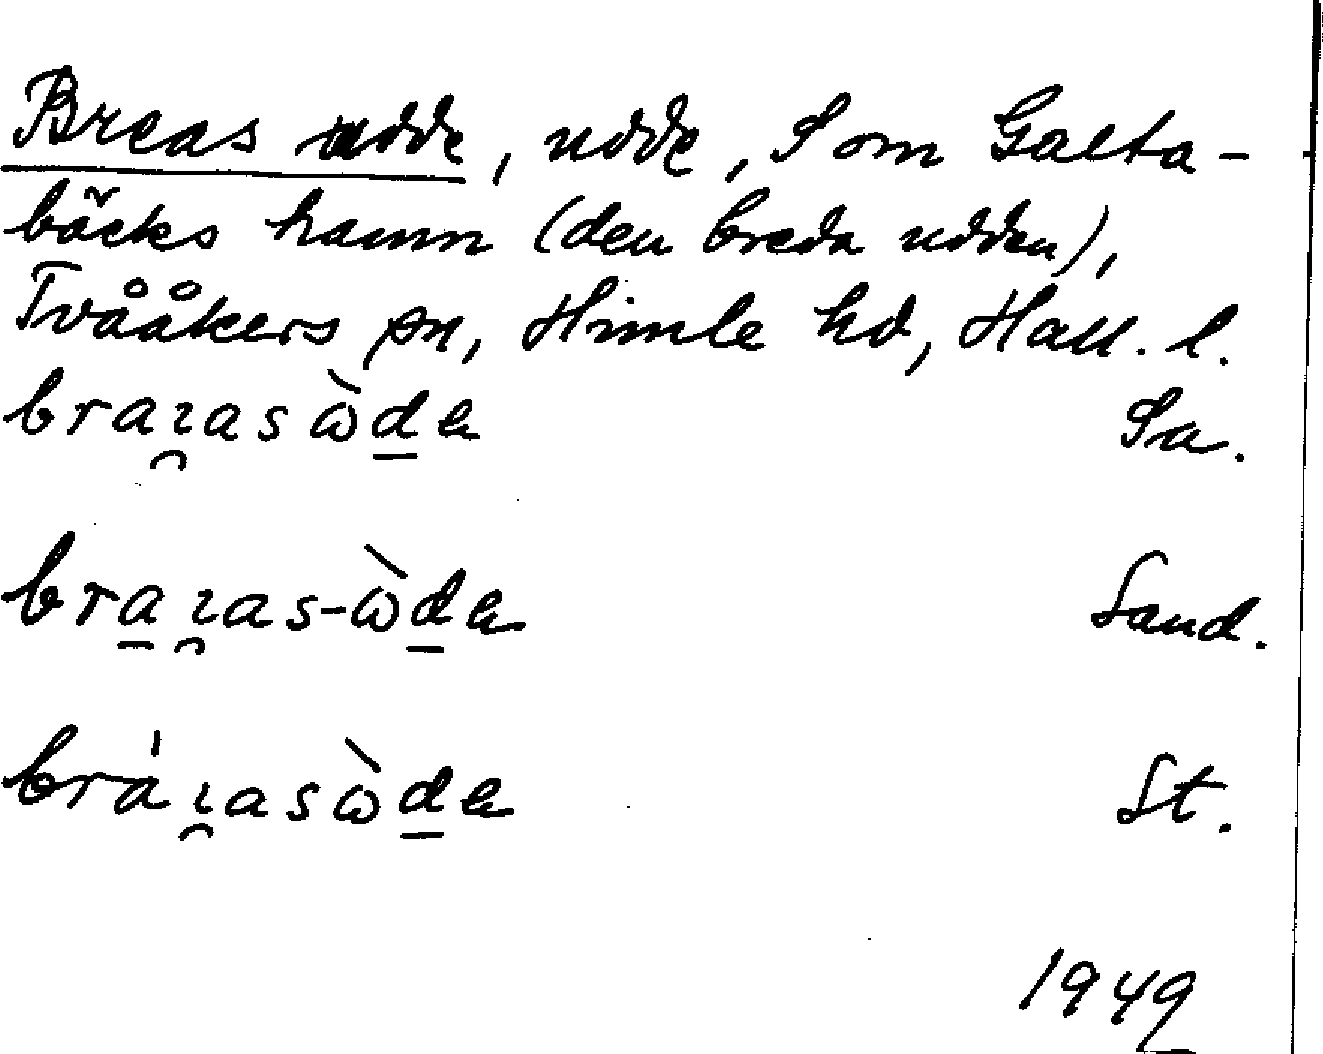 Breas udde, udde, S om Galta-
bäcks hamn (den breda udden),
Tvååkers sn, Himle hd, Hall. l.
braɿ̯as ὼde Sa.
braɿ̯as-ὼde Sand.
bráɿ̯asὼde St.
1949